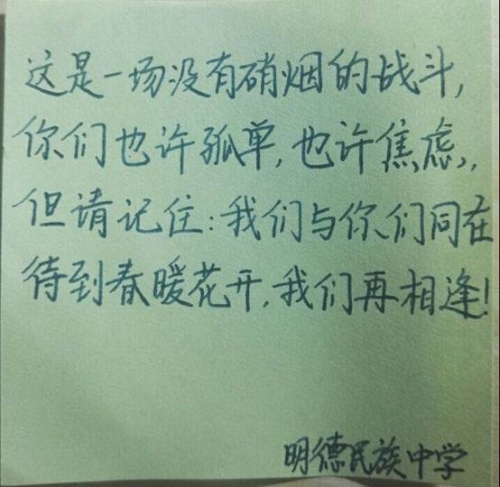 这是一场没有硝烟的战斗,
你们也许孤单,也许焦虑,
但请记住:我们与你们同在
待到春暖花开,我们再相逢!
明德民族中学